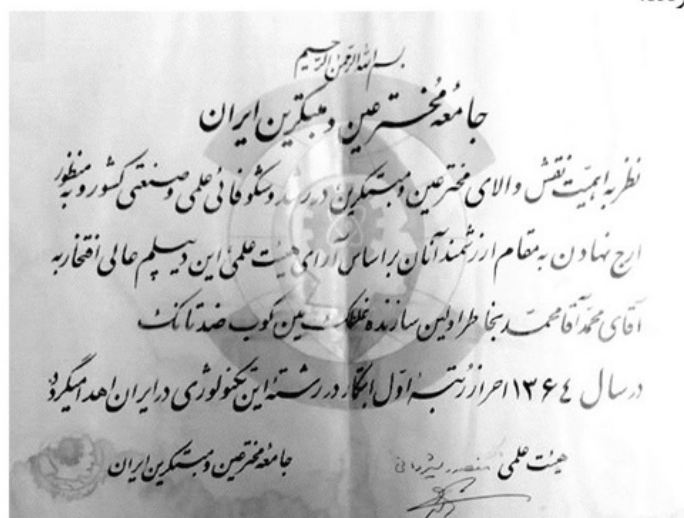 بسم الله الرحمن الرحیم
جامعه مخترعین و مبتکرین ایران
نظر به اهمیّت نقش والای مخترعین و مبتکرین در رشد و شکوفائی علمی و صنعتی کشور و به منظور
ارج نهادن به مقام ارزشمند آنان بر اساس آرای هیئت علمی این دیپلم عالی افتخار به
آقای محمد آقامحمد بخاطر اولین سازنده غلطک مین کوب ضد تانک
در سال ۱۳۶۴ احراز رتبهٔ اوّل ابتکار در رشته این تکنولوژی در ایران اهدا میگردد
هیئت علمی
جامعه مخترعین و مبتکرین ایران